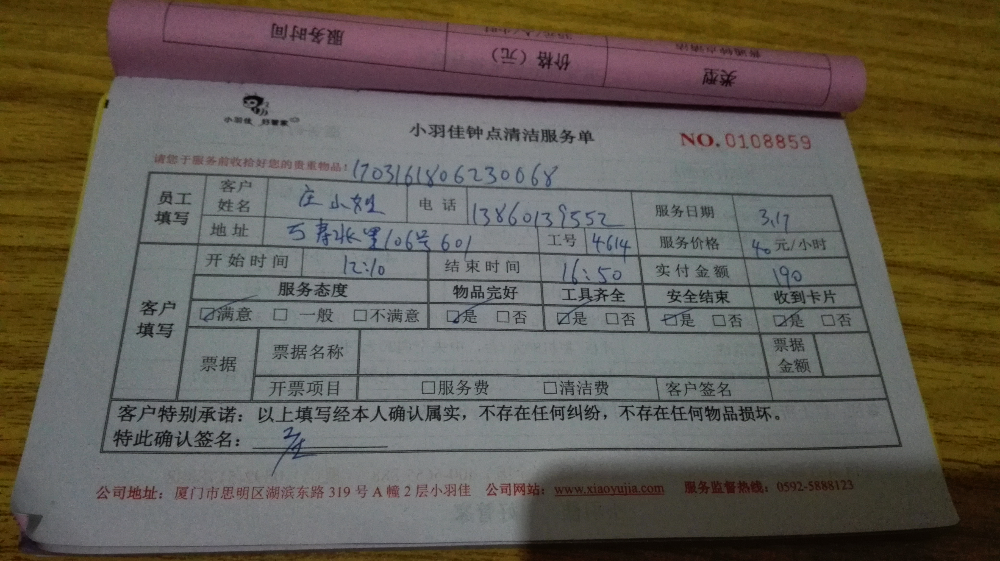 服务时间
价格（元）
类型
小羽佳 好管家
小羽佳钟点清洁服务单
NO. 0108859
请您于服务前收拾好您的贵重物品！
1703161806230068
员工填写
客户姓名 庄小姐 电话 13860139552 服务日期 3.17
地址 万寿北里106号601 工号 4614 服务价格 40元/小时
客户填写
开始时间 12:10 结束时间 16:50 实付金额 190
服务态度 物品完好 工具齐全 安全结束 收到卡片
☑满意 □一般 □不满意 ☑是 □否 ☑是 □否 ☑是 □否 ☑是 □否
票据 票据名称 票据金额
开票项目 □服务费 □清洁费 客户签名
客户特别承诺：以上填写经本人确认属实，不存在任何纠纷，不存在任何物品损坏。
特此确认签名： 庄
公司地址：厦门市思明区湖滨东路 319 号 A 幢 2 层小羽佳 公司网站：www.xiaoyujia.com 服务监督热线：0592-5888123